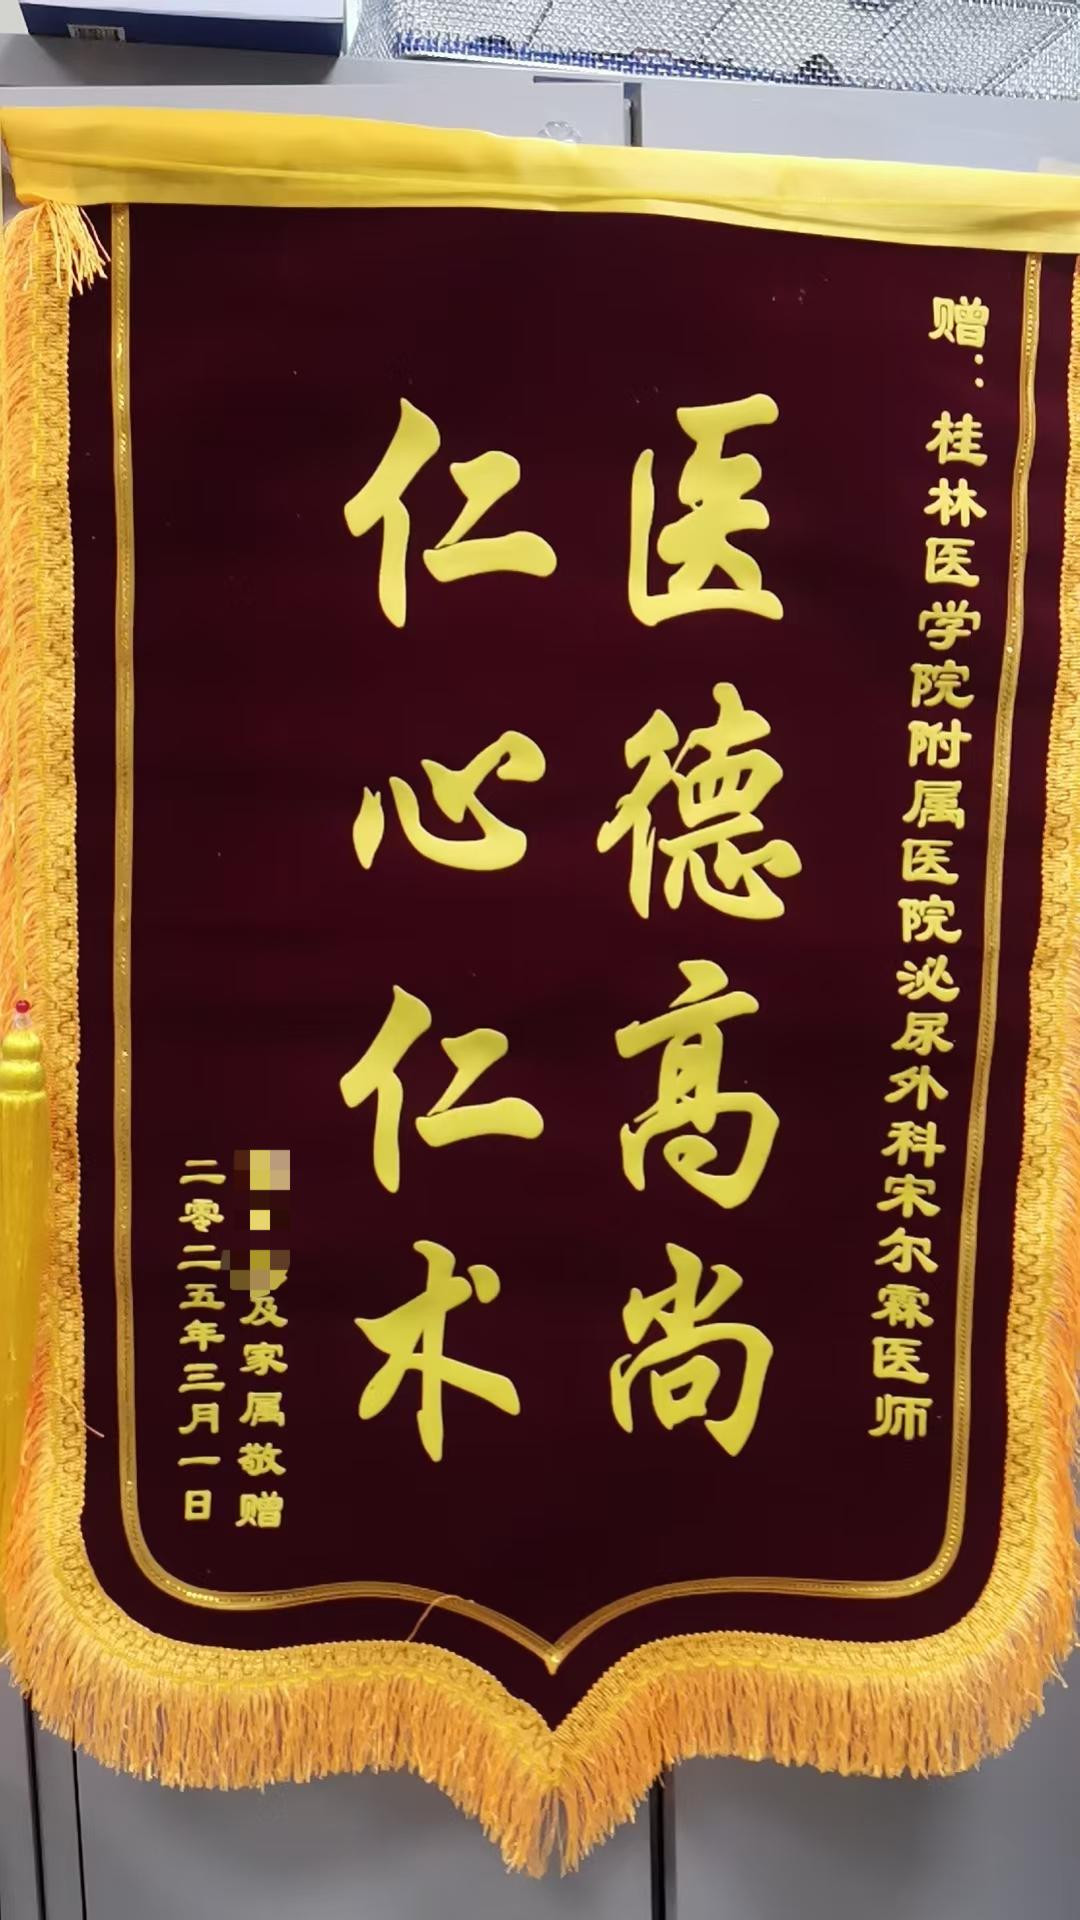 赠：桂林医学院附属医院泌尿外科宋尔霖医师
医德高尚
仁心仁术
及家属敬赠
二零二五年三月一日